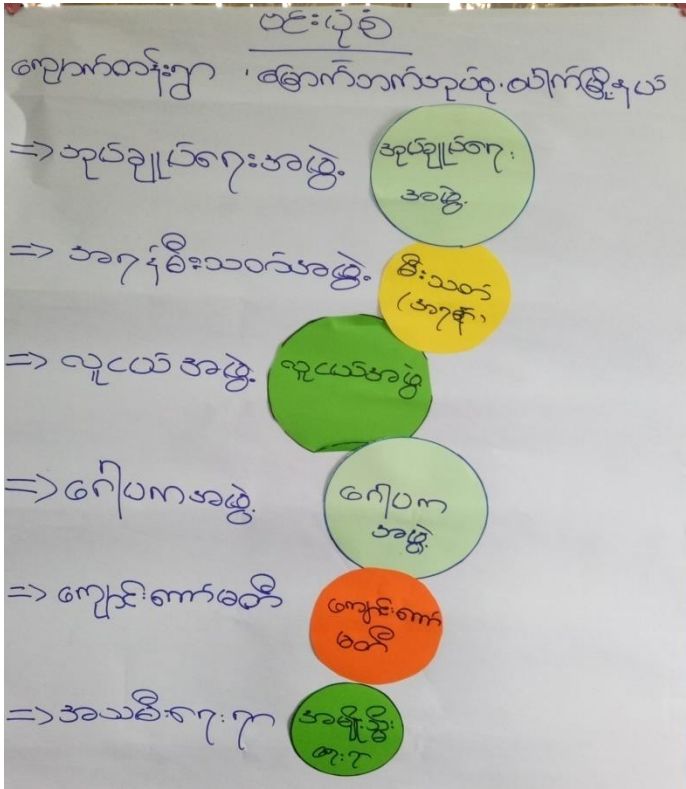 ဗင်းပုံစံ
ကျောက်တန်းရွာ ၊ မြောက်ဘက်အုပ်စု၊ ပေါက်မြို့နယ်
=> အုပ်ချုပ်ရေးအဖွဲ့
အုပ်ချုပ်ရေး
အဖွဲ့
=> အရန်မီးသတ်အဖွဲ့
မီးသတ်
(အရန်)
=> လူငယ်အဖွဲ့
လူငယ်အဖွဲ့
=> ဂေါပကအဖွဲ့
ဂေါပက
အဖွဲ့
=> ကျောင်းကော်မတီ
ကျောင်းကော်
မတီ
=> အသမီးရေးရာ
အမျိုးသမီး
ရေးရာ